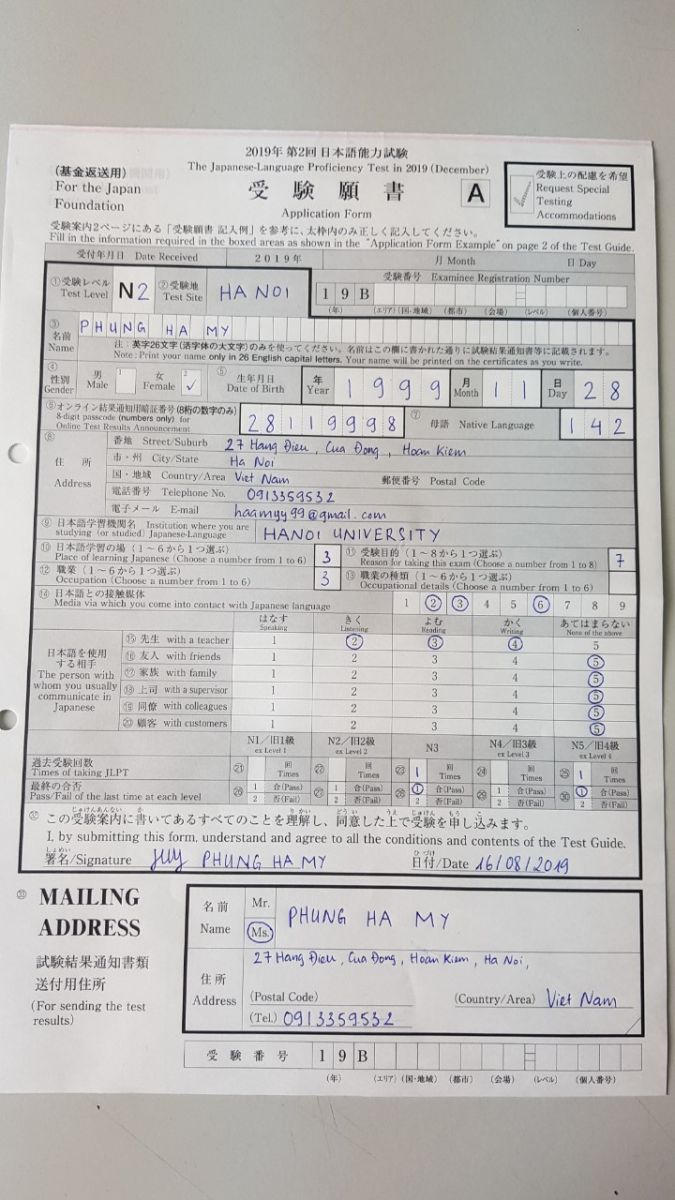 2019年 第2回 日本語能力試験
(基金返送用) The Japanese-Language Proficiency Test in 2019 (December)
For the Japan Foundation
受験願書
Application Form
A
受験上の配慮を希望
Request Special
Testing
Accommodations
受験案内2ページにある「受験願書 記入例」を参考に、太枠内のみ正しく記入してください。
Fill in the information required in the boxed areas as shown in the "Application Form Example" on page 2 of the Test Guide.
受付年月日 Date Received 2019年 月 Month 日 Day
①受験レベル Test Level N2 ②受験地 Test Site HA NOI
受験番号 Examinee Registration Number
1 9 B
(年) (エリア) (国・地域) (都市) (会場) (レベル) (個人番号)
③ 名前 Name PHUNG HA MY
注:英字26文字(活字体の大文字)のみを使ってください。名前はこの欄に書かれた通りに試験結果通知書等に記載されます。
Note: Print your name only in 26 English capital letters. Your name will be printed on the certificates as you write.
④ 性別 Gender 男 Male 1 女 Female 2 ✓ ⑤ 生年月日 Date of Birth 年 Year 1999 月 Month 11 日 Day 28
⑥オンライン結果通知用暗証番号(8桁の数字のみ)
8-digit passcode (numbers only) for
Online Test Results Announcement
28119998
⑦ 母語 Native Language 142
⑧ 住所 Address
番地 Street/Suburb 27 Hang Dieu, Cua Dong, Hoan Kiem
市・州 City/State Ha Noi
国・地域 Country/Area Viet Nam 郵便番号 Postal Code
電話番号 Telephone No. 0913359532
電子メール E-mail haamyy99@gmail.com
⑨ 日本語学習機関名 Institution where you are
studying (or studied) Japanese-Language HANOI UNIVERSITY
⑩ 日本語学習の場(1~6から1つ選ぶ)
Place of learning Japanese (Choose a number from 1 to 6) 3
⑪ 受験目的(1~8から1つ選ぶ)
Reason for taking this exam (Choose a number from 1 to 8) 7
⑫ 職業(1~6から1つ選ぶ)
Occupation (Choose a number from 1 to 6) 3
⑬ 職業の種類(1~6から1つ選ぶ)
Occupational details (Choose a number from 1 to 6)
⑭ 日本語との接触媒体
Media via which you come into contact with Japanese language 1 2 3 4 5 6 7 8 9
日本語を使用する相手
The person with whom you usually communicate in Japanese
はなす Speaking きく Listening よむ Reading かく Writing あてはまらない None of the above
⑮ 先生 with a teacher 1 2 3 4 5
⑯ 友人 with friends 1 2 3 4 5
⑰ 家族 with family 1 2 3 4 5
⑱ 上司 with a supervisor 1 2 3 4 5
⑲ 同僚 with colleagues 1 2 3 4 5
⑳ 顧客 with customers 1 2 3 4 5
N1/旧1級 ex Level 1 N2/旧2級 ex Level 2 N3 N4/旧3級 ex Level 3 N5/旧4級 ex Level 4
過去受験回数
Times of taking JLPT ㉑ 回 Times ㉒ 回 Times ㉓ 1 回 Times ㉔ 回 Times ㉕ 1 回 Times
最終の合否
Pass/Fail of the last time at each level
㉖ 1 合(Pass) ㉗ 1 合(Pass) ㉘ 1 合(Pass) ㉙ 1 合(Pass) ㉚ 1 合(Pass)
2 否(Fail) 2 否(Fail) 2 否(Fail) 2 否(Fail) 2 否(Fail)
この受験案内に書いてあるすべてのことを理解し、同意した上で受験を申し込みます。
I, by submitting this form, understand and agree to all the conditions and contents of the Test Guide.
署名/Signature PHUNG HA MY 日付/Date 16/08/2019
MAILING
ADDRESS
試験結果通知書類
送付用住所
(For sending the test
results)
名前 Name Mr. Ms. PHUNG HA MY
住所 Address
27 Hang Dieu, Cua Dong, Hoan Kiem, Ha Noi,
(Postal Code) (Country/Area) Viet Nam
(Tel.) 0913359532
受験番号 1 9 B
(年) (エリア) (国・地域) (都市) (会場) (レベル) (個人番号)